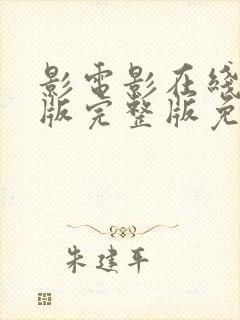 影電影在线
版完整版免
朱建平